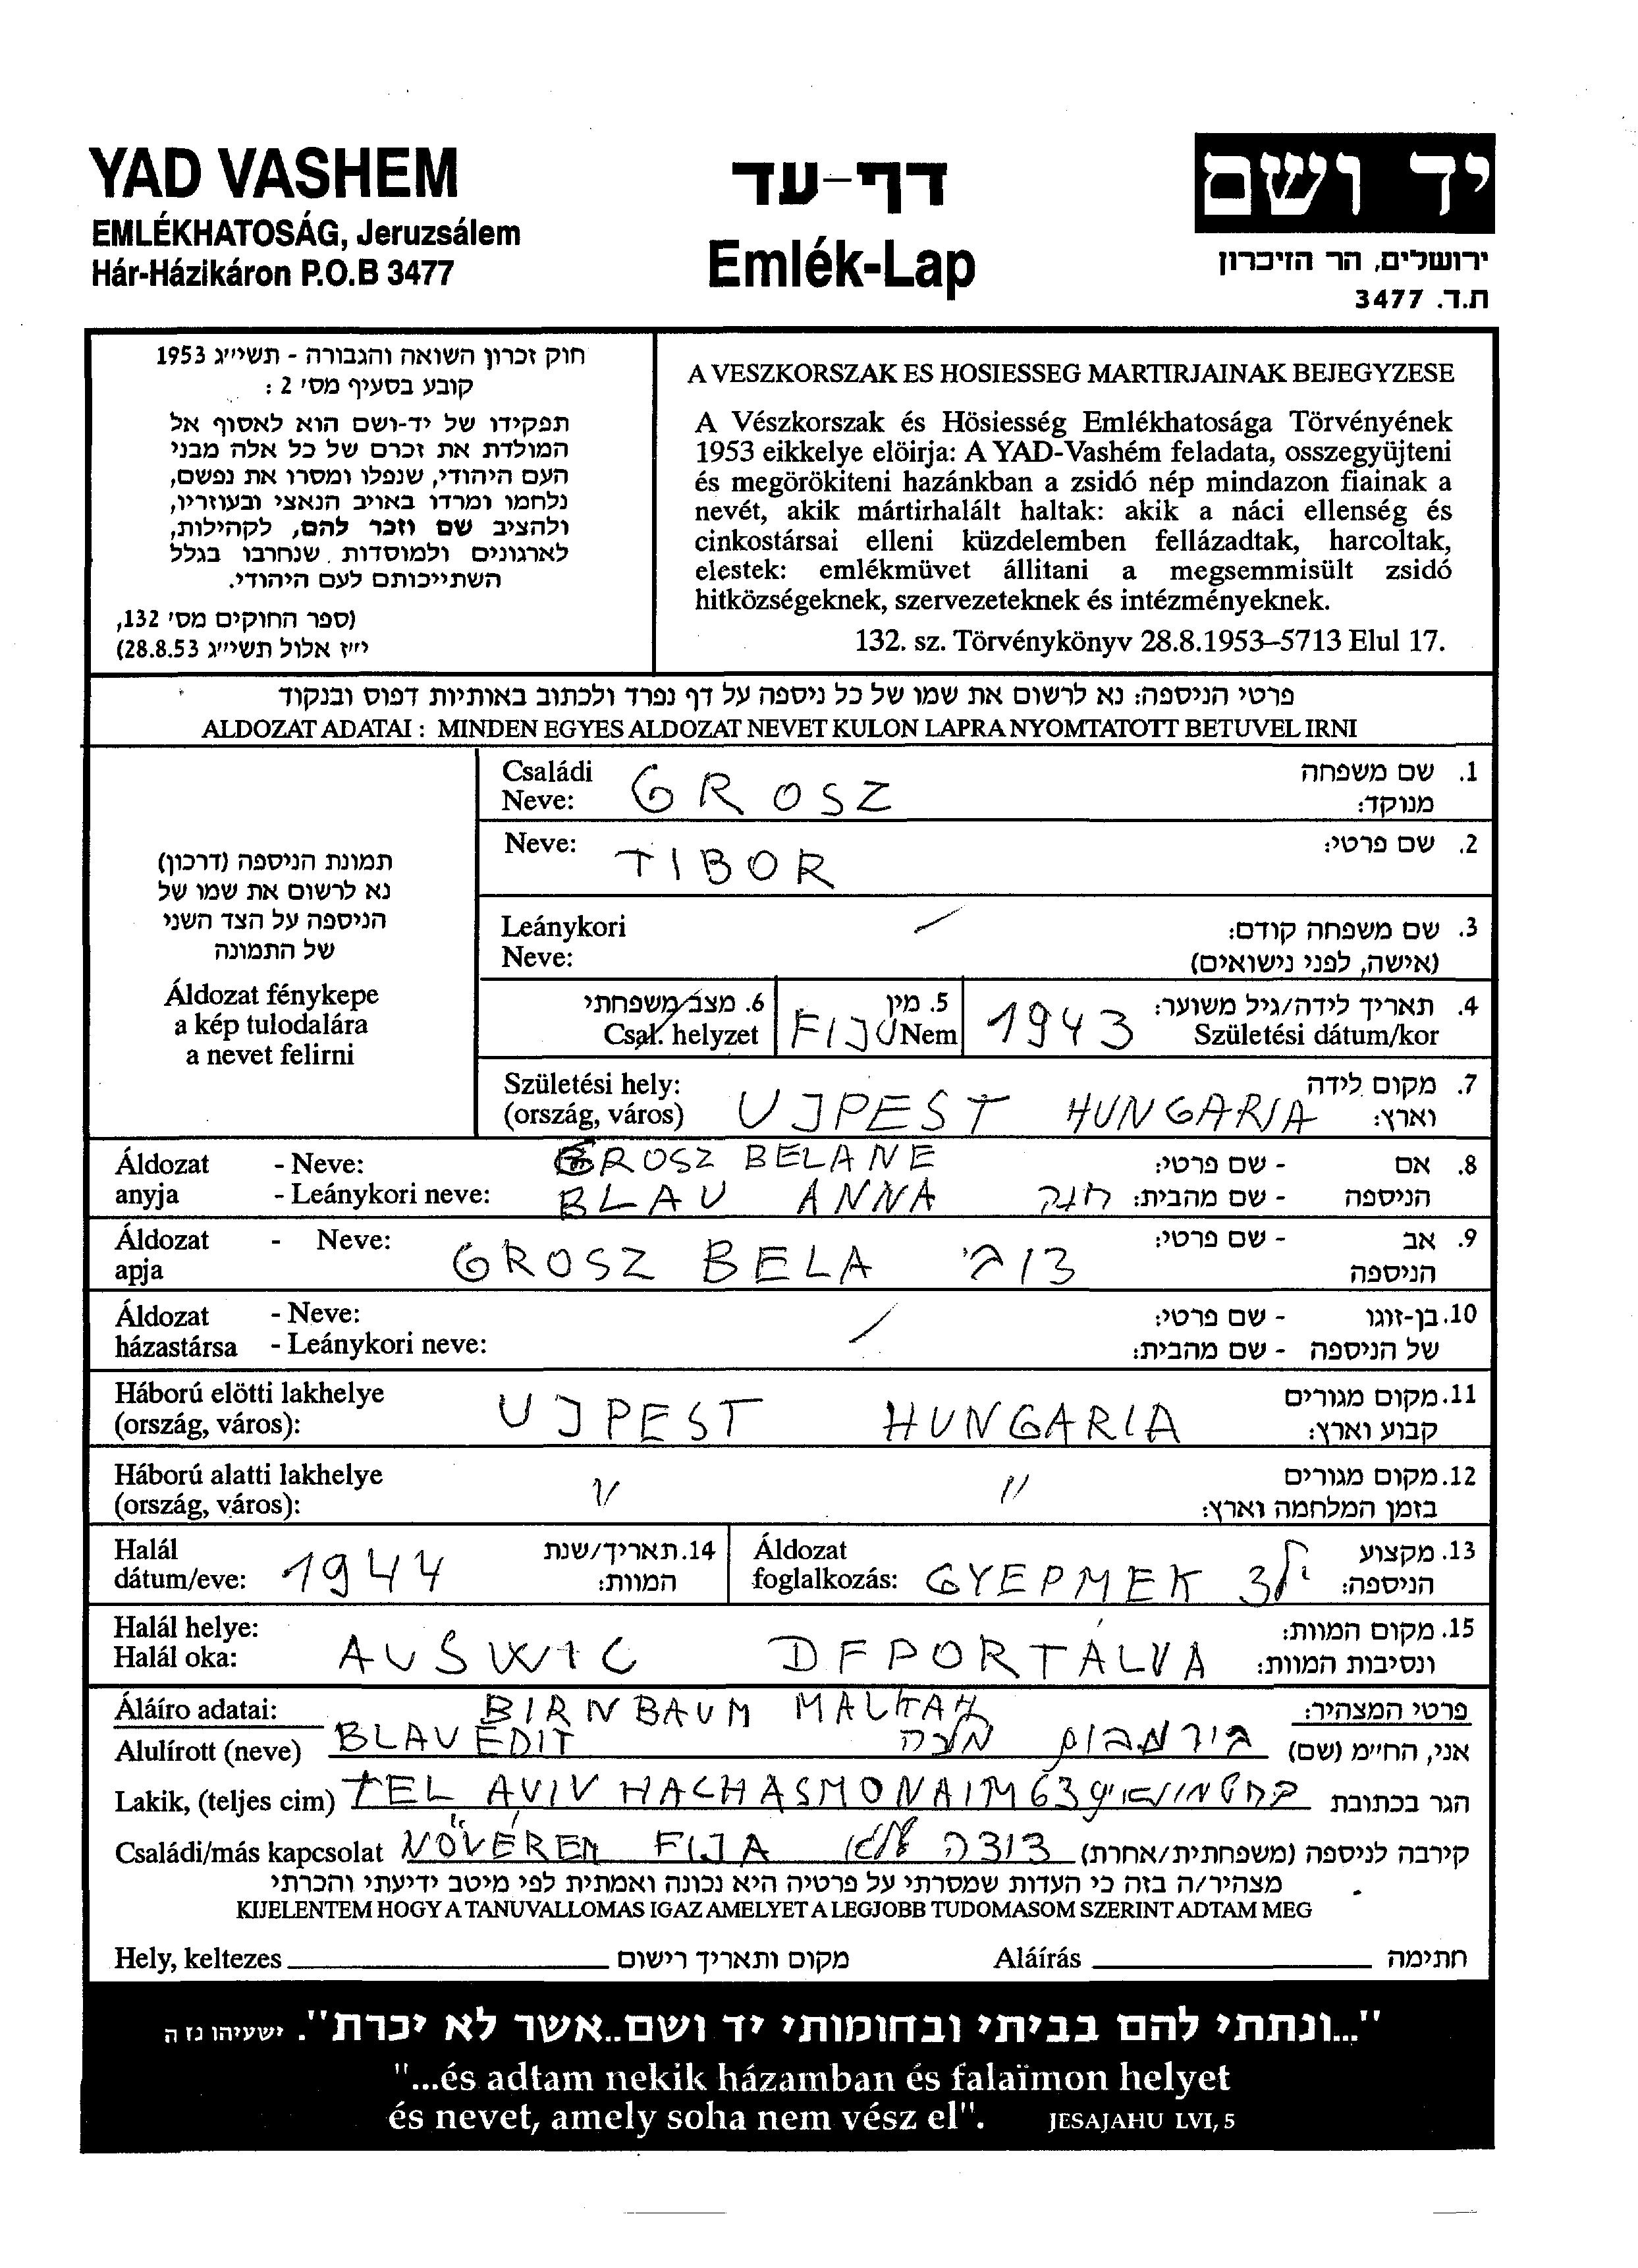 YAD VASHEM
EMLÉKHATOSÁG, Jeruzsálem
Hár-Házikáron P.O.B 3477
דף-עד
Emlék-Lap
יד ושם
ירושלים, הר הזיכרון
ת.ד. 3477
חוק זכרון השואה והגבורה - תשי״ג 1953
קובע בסעיף מס׳ 2 :
תפקידו של יד-ושם הוא לאסוף אל
המולדת את זכרם של כל אלה מבני
העם היהודי, שנפלו ומסרו את נפשם,
נלחמו ומרדו באויב הנאצי ובעוזריו,
ולהציב שם וזכר להם, לקהילות,
לארגונים ולמוסדות שנחרבו בגלל
השתייכותם לעם היהודי.
(ספר החוקים מס׳ 132,
י״ז אלול תשי״ג 28.8.53)
A VESZKORSZAK ES HOSIESSEG MARTIRJAINAK BEJEGYZESE
A Vészkorszak és Hösiesség Emlékhatosága Törvényének
1953 eikkelye elöirja: A YAD-Vashém feladata, osszegyüjteni
és megörökiteni hazánkban a zsidó nép mindazon fiainak a
nevét, akik mártirhalált haltak: akik a náci ellenség és
cinkostársai elleni küzdelemben fellázadtak, harcoltak,
elestek: emlékmüvet állitani a megsemmisült zsidó
hitközségeknek, szervezeteknek és intézményeknek.
132. sz. Törvénykönyv 28.8.1953–5713 Elul 17.
פרטי הניספה: נא לרשום את שמו של כל ניספה על דף נפרד ולכתוב באותיות דפוס ובנקוד
ALDOZAT ADATAI : MINDEN EGYES ALDOZAT NEVET KULON LAPRA NYOMTATOTT BETUVEL IRNI
תמונת הניספה (דרכון)
נא לרשום את שמו של
הניספה על הצד השני
של התמונה
Áldozat fénykepe
a kép tulodalára
a nevet felirni
Családi Neve: GROSZ 1. שם משפחה מנוקד:
Neve: TIBOR 2. שם פרטי:
Leánykori Neve: / 3. שם משפחה קודם: (אישה, לפני נישואים)
6. מצב משפחתי Csal. helyzet / 5. מין Nem FIJU 1943 4. תאריך לידה/גיל משוער: Születési dátum/kor
Születési hely: (ország, város) UJPEST HUNGARIA 7. מקום לידה וארץ:
Áldozat - Neve: GROSZ BELANE - שם פרטי: 8. אם
anyja - Leánykori neve: BLAU ANNA חנה - שם מהבית: הניספה
Áldozat - Neve: - שם פרטי: 9. אב
apja GROSZ BELA הניספה
Áldozat - Neve: / - שם פרטי: 10. בן-זוגו
házastársa - Leánykori neve: - שם מהבית: של הניספה
Háború elötti lakhelye (ország, város): UJPEST HUNGARIA 11. מקום מגורים קבוע וארץ:
Háború alatti lakhelye (ország, város): " " 12. מקום מגורים בזמן המלחמה וארץ:
Halál dátum/eve: 1944 14. תאריך/שנת המוות: Áldozat foglalkozás: GYEPMEK ילד 13. מקצוע הניספה:
Halál helye:
Halál oka: AUSWIC DEPORTÁLVA 15. מקום המוות: ונסיבות המוות:
Áláiro adatai: BIRNBAUM MALKAH פרטי המצהיר:
Alulírott (neve) BLAU EDIT בירנבוים מלכה אני, החי״מ (שם)
Lakik, (teljes cim) TEL AVIV HACHASMONAIM 63 הגר בכתובת
Családi/más kapcsolat NÖVÉREM FIJA קירבה לניספה (משפחתית/אחרת)
מצהיר/ה בזה כי העדות שמסרתי על פרטיה היא נכונה ואמתית לפי מיטב ידיעתי והכרתי
KIJELENTEM HOGY A TANUVALLOMAS IGAZ AMELYET A LEGJOBB TUDOMASOM SZERINT ADTAM MEG
Hely, keltezes מקום ותאריך רישום Aláírás חתימה
"...ונתתי להם בביתי ובחומותי יד ושם..אשר לא יכרת". ישעיהו נז ה
"...és adtam nekik házamban és falaïmon helyet
és nevet, amely soha nem vész el". JESAJAHU LVI, 5